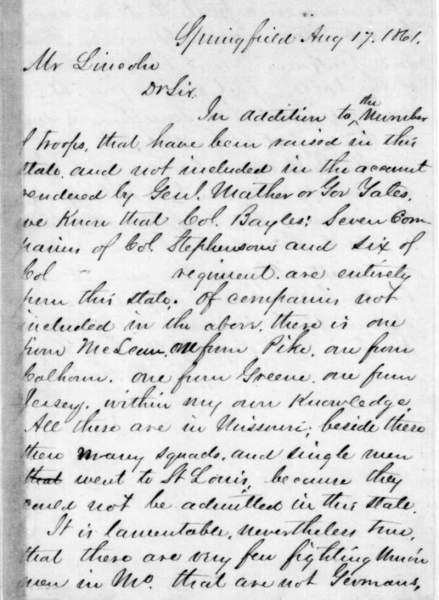 Springfield Aug 17. 1861.
Mr Lincoln
Dr Sir.
In addition to the Number
of troops, that have been raised in this
State, and not included in the account
rendered by Genl. Mather or Gov Yates,
we Know that Col. Bayles; Seven Com
panies of Col Stephensons and six of
Col - regiment are entirely
from this state. Of companies not
included in the above, there is one
from McLean, one from Pike, one from
Calhoun. one from Greene. one from
Jersey. within my own Knowledge
All these are in Missouri; beside these
there many squads. and single men
that went to St Louis, because they
could not be admitted in this state.
It is lamentable, nevertheless true,
that there are very few fighting Union
men in Mo. that are not Germans,